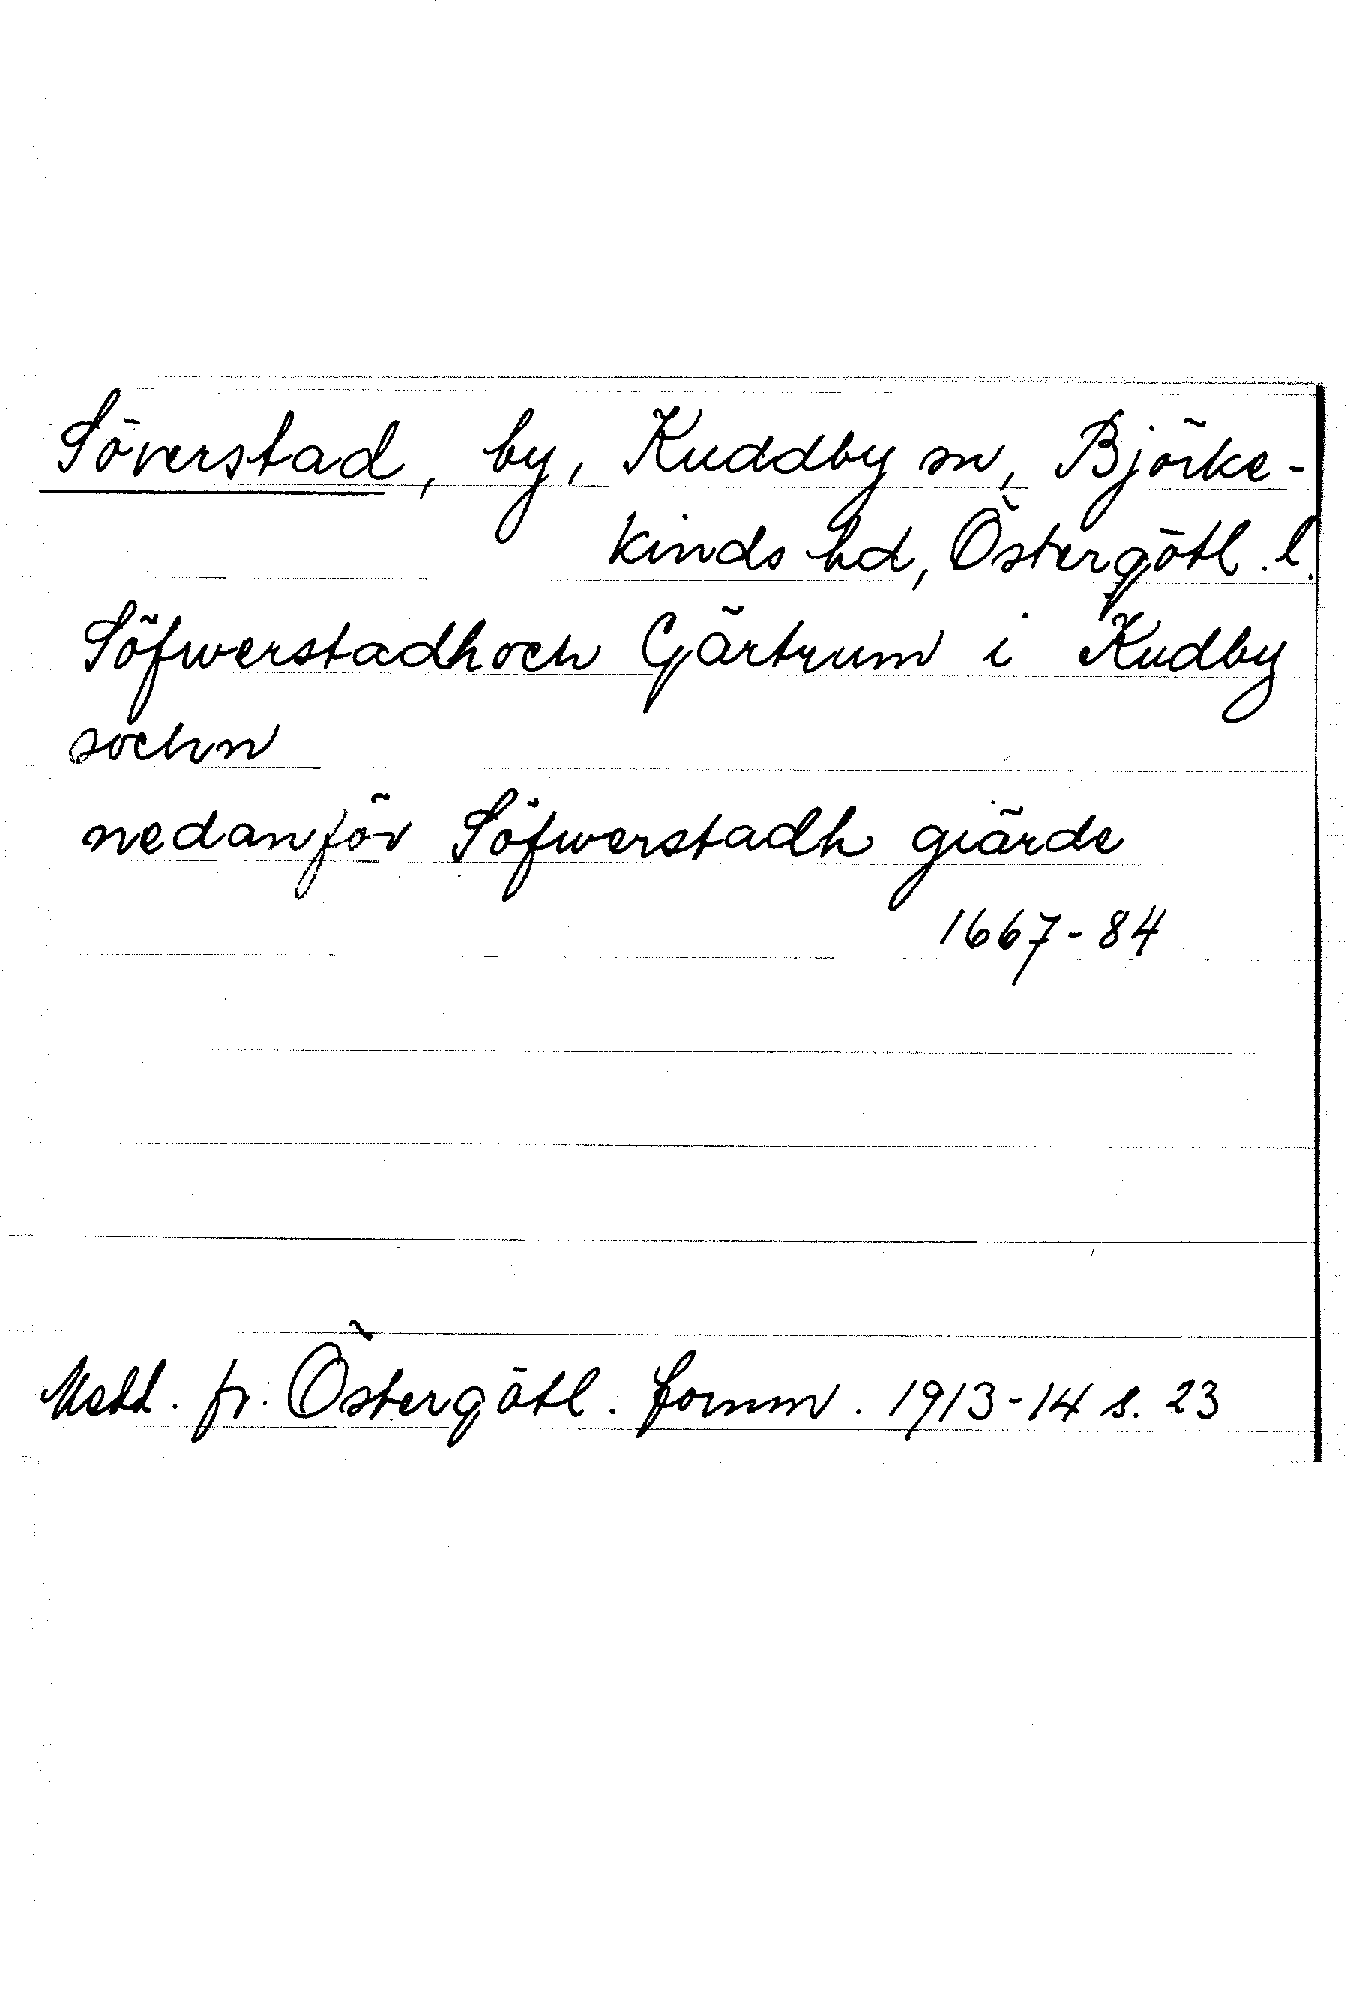 Söverstad, by, Kuddby sn, Björke-
kinds hd, Östergötl. l.
Söfwerstadh och Gärtrum i Kudby
sochn
nedanför Söfwerstadh giärde
1667-84
Medd. fr. Östergötl. fornm. 1913-14 s. 23